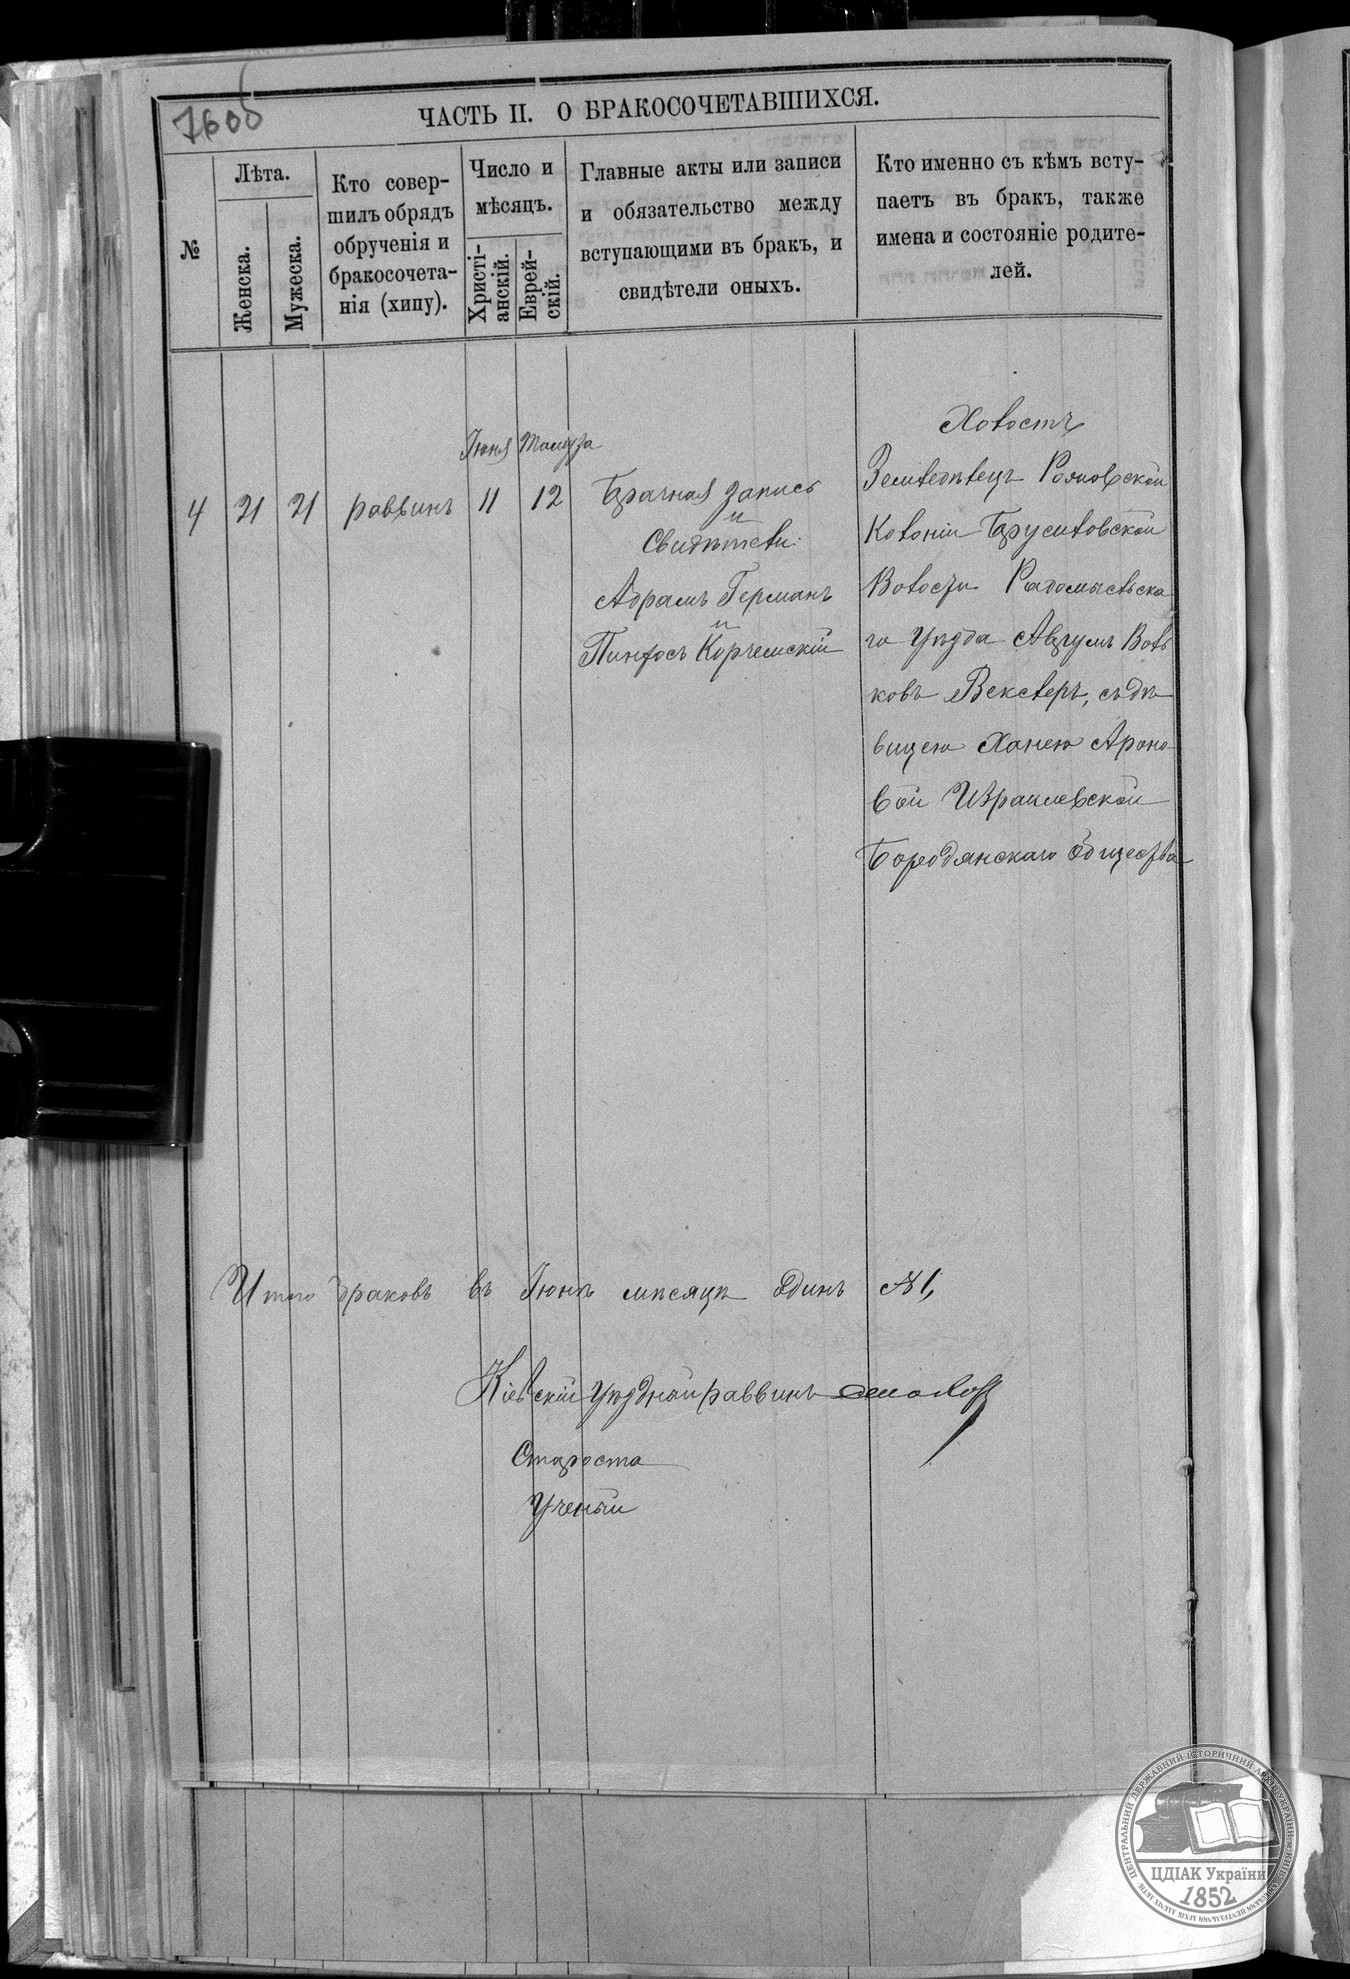 7606
ЧАСТЬ II. О БРАКОСОЧЕТАВШИХСЯ.
№
Лѣта.
Женска.
Мужеска.
Кто совер-
шилъ обрядъ
обрученія и
бракосочета-
нія (хипу).
Число и
мѣсяцъ.
Христі-
анскій.
Еврей-
скій.
Главные акты или записи
и обязательство между
вступающими въ бракъ, и
свидѣтели оныхъ.
Кто именно съ кѣмъ всту-
паетъ въ бракъ, также
имена и состояніе родите-
лей.
4
21
21
раввинъ
Іюня
11
Тамуза
12
Брачная запись
и
Свидѣтели:
Абрамъ Германъ
и
Пинхосъ Корчемскій
Холостъ
Земледѣлецъ
Колоніи Брусиловской
Волости Радомысльска
го Уѣзда Аврумъ Воль
ковъ Векслеръ, съ дѣ
вицею Ханею Ароно
вой Израилевской
Бородянскаго Общества
Итого браковъ въ Іюнѣ мѣсяцѣ одинъ №1,
Кіевскій Уѣздный раввинъ
Староста
Ученый
ЦЕНТРАЛЬНИЙ ДЕРЖАВНИЙ ІСТОРИЧНИЙ АРХІВ УКРАЇНИ М.КИЇВ
ЦДІАК України
1852